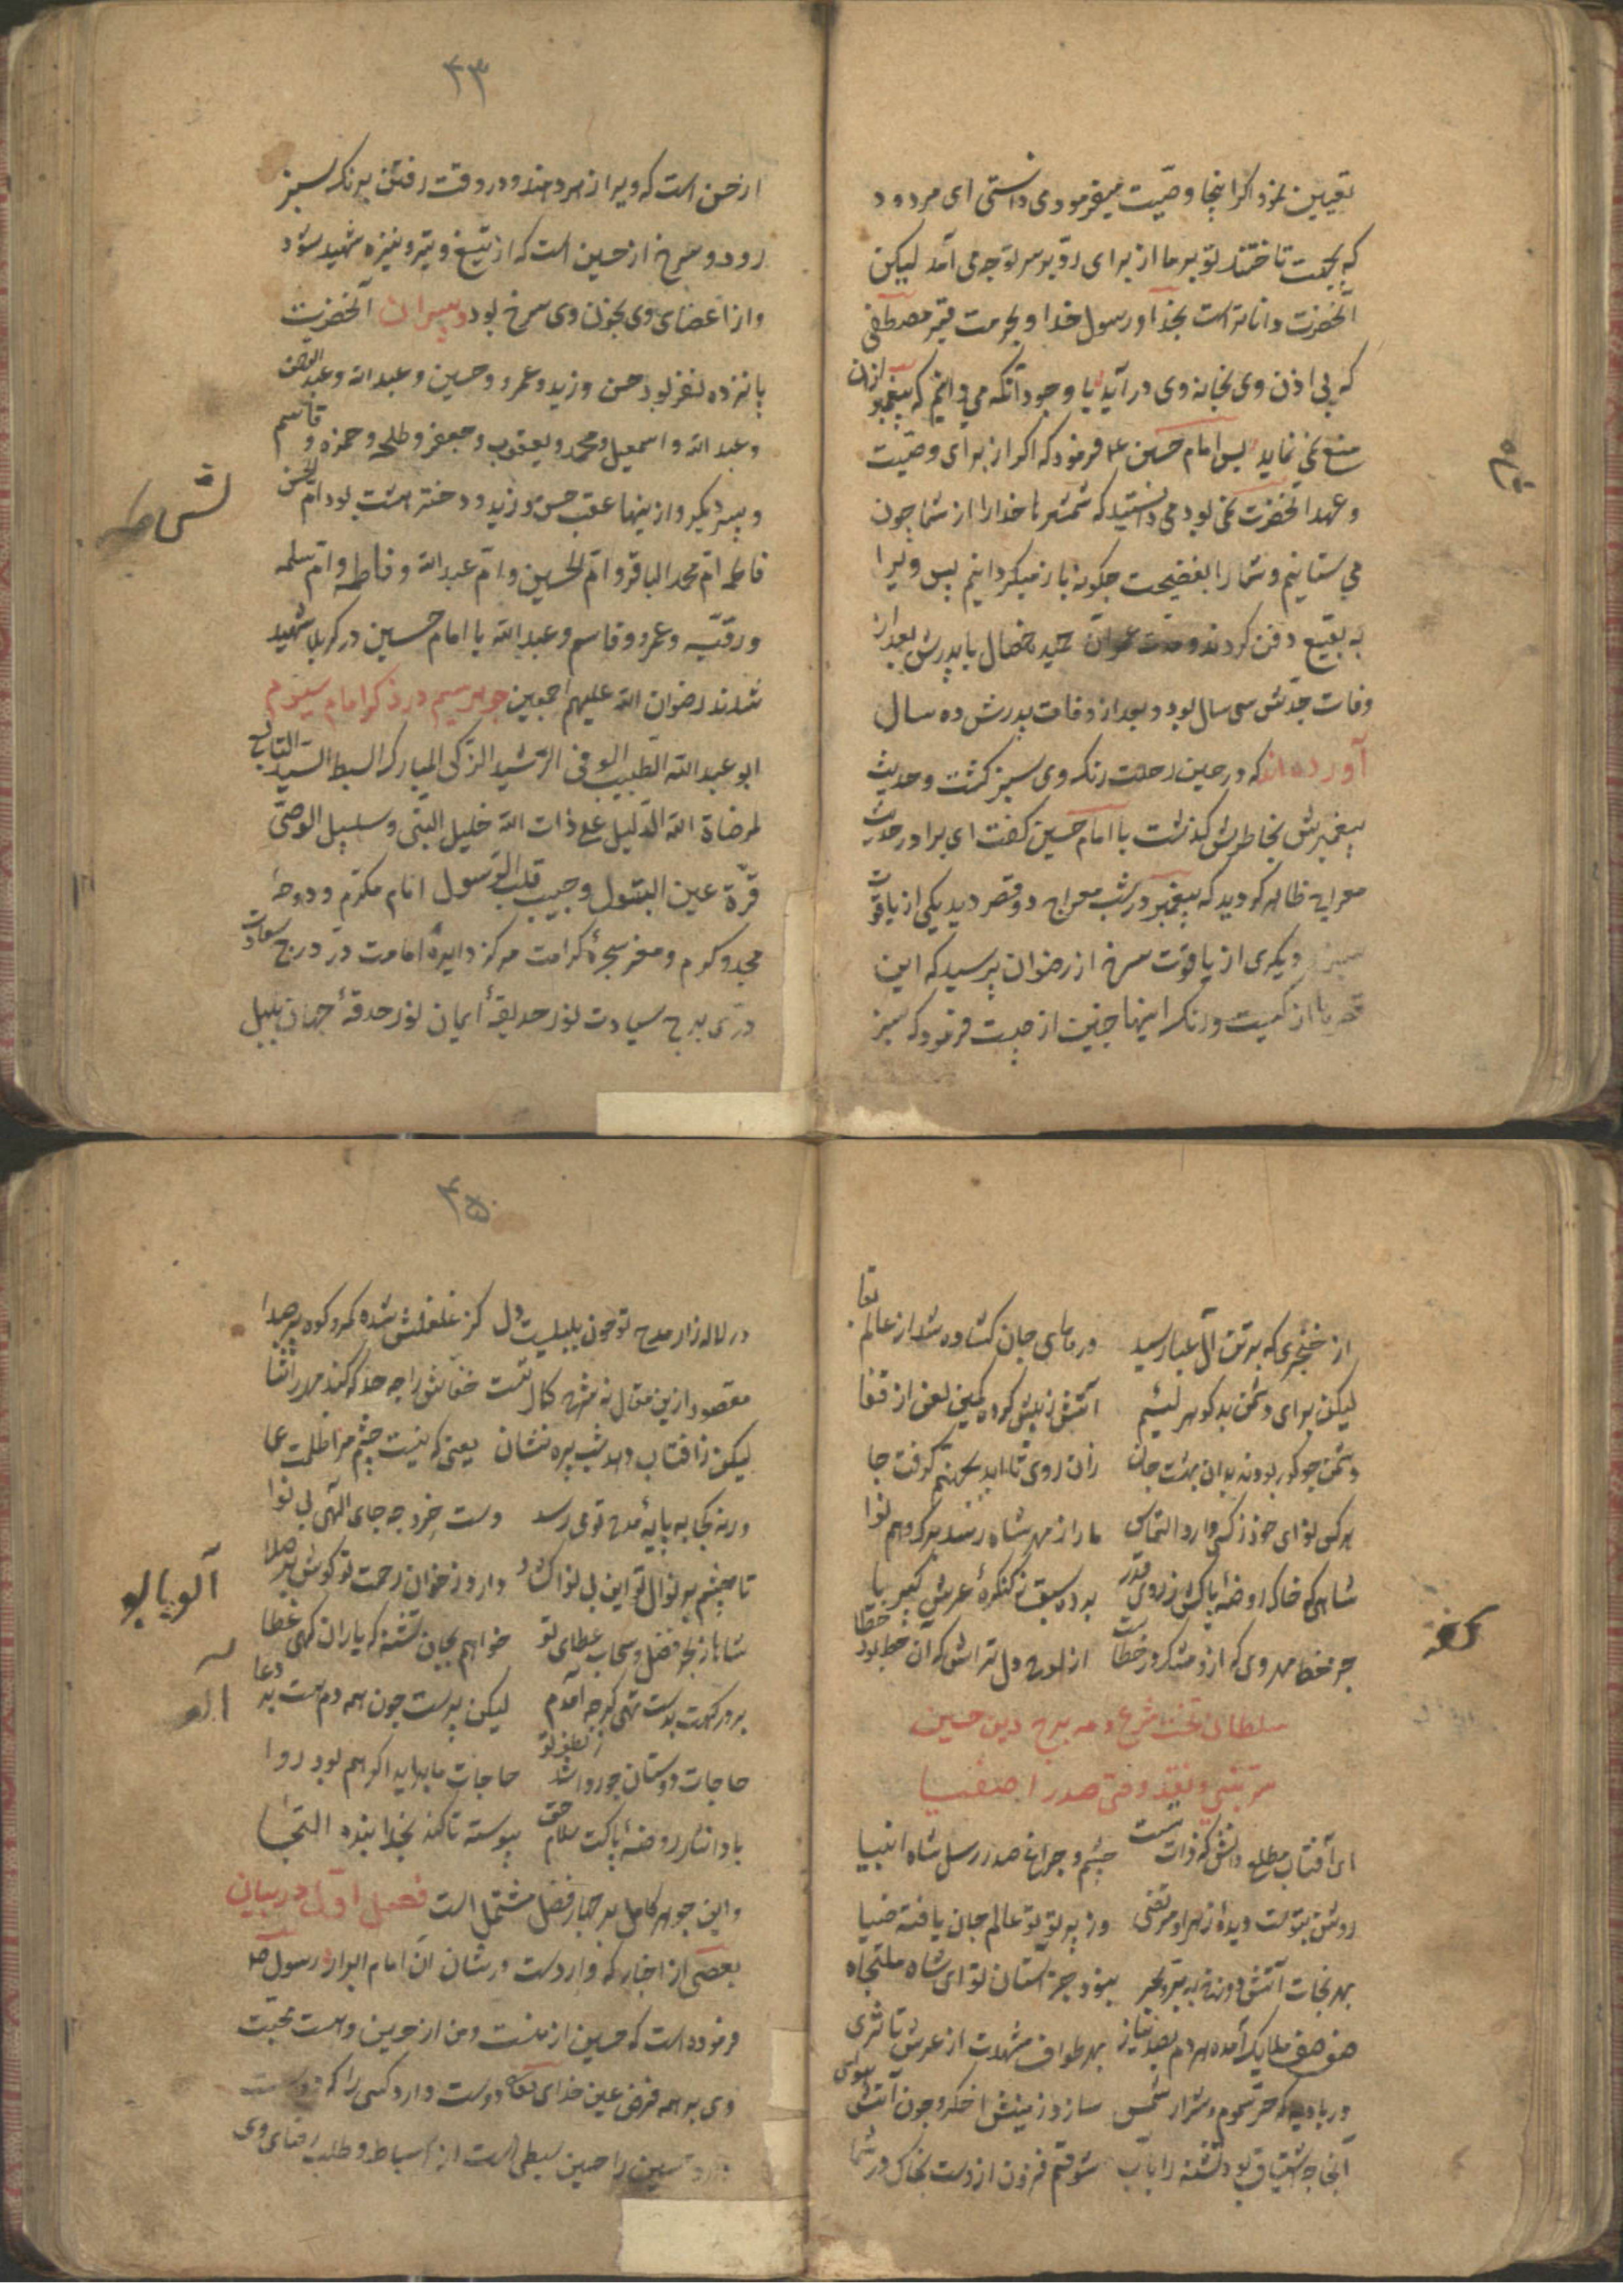 تعیین نمود اکر اینجا وصیّت میفرمود می دانستی ای مردود
که بحیت تاختند تو بر ما از برای رو بر سر تو چه می آمد لیکن
آنحضرت داناتر است بخدا و رسول خدا و بحرمت قبر مصطفی
که بی اذن وی بخانه وی در آید با وجود آنکه می دانم که پیغمبر ازان
منع نمی نماید پس امام حسین ع فرمود که اکر از برای وصیّت
و عهد آنحضرت نمی بود می دانستید که شمشیرها خدا را از شما چون
می ستانیم و شما را بفضیحت چکونه باز میکردانیم پس ویرا
به بقیع دفن کردند و مدت عمر آن حمید خصال با پدرش بعد از
وفات جدّش سی سال بود و بعد از وفات پدرش ده سال
آورده اند که در حین رحلت رنک وی سبز کشت و حدیث
پیغمبرش بخاطرش کذشت با امام حسین کفت ای برادر حدیث
معراج ظاهر کردید که پیغمبر در شب معراج دو قصر دید یکی از یاقوت
سبز و دیکری از یاقوت سرخ از رضوان پرسید که این
قصرها از کیست و رنک اینها چنین از چیست فرمود که سبز
۴۳
از حسن است که ویرا زهر دهند و در وقت رفتن برنک سبز
رود و سرخ از حسین است که از تیغ و تیر و نیزه شهید شود
و از اعضای وی بخون وی سرخ بود و پسران آنحضرت
پانزده نفر بود حسن و زید و عمرو و حسین و عبد الله و عبد الرحمن
و عبد الله و اسمعیل و محمد و یعقوب و جعفر و طلحه و حمزه و قاسم
و پسر دیکر و از ینها عقب حسن و زید و دختر هشت بود ام الحسن
فاطمه ام محمد الباقر و ام الحسین و ام عبد الله و فاطمه و ام سلمه
و رقیّه و عمرو و قاسم و عبد الله با امام حسین در کربلا شهید
شدند رضوان الله علیهم اجمعین جوهر سیم در ذکر امام سیوم
ابو عبد الله الطیب الوفی الرشید الزکی المبارک السبط السیّد التابع
لمرضاة الله الدلیل علی ذات الله خلیل النبی و سلیل الوصیّ
قرّة عین البتول و حبیب قلب الرسول امام مکرّم و دوحهٔ
مجد و کرم و مغز شجرهٔ کرامت مرکز دایرهٔ امامت درّ درج سعادت
درّی برج سیادت نور حدیقهٔ ایمان نور حدقهٔ جهان بلبل
از خنجری که بر تن آل عبا رسید درهای جان کشاده شد از عالم بقا
لیکن برای دشمن بد کوهر لئیم آتش ز پیش کرده کمین لعن از قفا
دشمن چو کور بود نه بدان بهشت جان زان روی تا ابد بجهنّم کرفت جا
هر کس نوای خود ز کسی دارد التماس ما را ز مهر شاه رسد برک و هم نوا
شاهی که خاک روضهٔ پاکش ز روی قدر برده سبق ز کنکرهٔ عرش کبریا
جز خط مهر وی که ازو مشک در خطاست از لوح دل تراش که آن خط بود خطا
سلطان تخت شرع و مه برج دین حسین
مرتضی و نقد وصی صدر اصفیا
ای آفتاب مطلع دانش که ذات تست چشم و چراغ صدر رسل شاه انبیا
روشن بتوست دیدهٔ زهرا و مرتضی وز پرتو تو عالم جان یافته ضیا
بهر نجات آتش دوزخ نبود جز آستان تو ای شاه ملتجاه
صف صف ملایک آمده هر دم بصد نیاز بهر طواف مشهدت از عرش تا ثری
در بادیه که حرّ سموم و شرار شمس سازد زمینش اخکر و چون آتش هوا
آنجا چه اشتیاق بود تشنه را بآب شوقم فزون ازوست بخاک در شما
۴۵
در لاله زار مدح تو چون بلبلیست دل کز غلغلش شده کمر و کوه پر صدا
مقصود ازین مقال نه شرح کمال تست خفاش را چه حد که کند مهر را ثنا
لیکن ز آفتاب دهد شب پره نشان یعنی که نیست چشم مرا ظلمت عما
ورنه کجا به پایهٔ مدح تو می رسد دست خرد چه جای الهی بی نوا
تا چشم بر نوال تو این بی نوا کشاد دارد ز خوان رحمت تو کوش بر صلا
شاها ز بحر فضل و سحاب عطای تو خواهم بجان تشنه که باران کهی عطا
بر درکهت بدست تهی کرچه آمدم لیکن پرست چون همه دم هست پر دعا
حاجات دوستان چو روا شد ز لطف تو حاجات ما بدایه اکر هم بود روا
بادا نثار روضهٔ پاکت سلام حق پیوسته تا کند بخدا بنده التجا
و این جوهر کامل بر چهار فصل مشتمل است فصل اول در بیان
بعضی از اخبار که وارد ست در شان آن امام ابرار رسول صلعم
فرموده است که حسین از منست و من از حسین و است محبّت
وی بر همه فرض عین خدای تعالی دوست دارد کسی را که دوست
دارد حسین را حسین سبطی است از اسباط و طلب رضای وی
آلوبالو
آلو